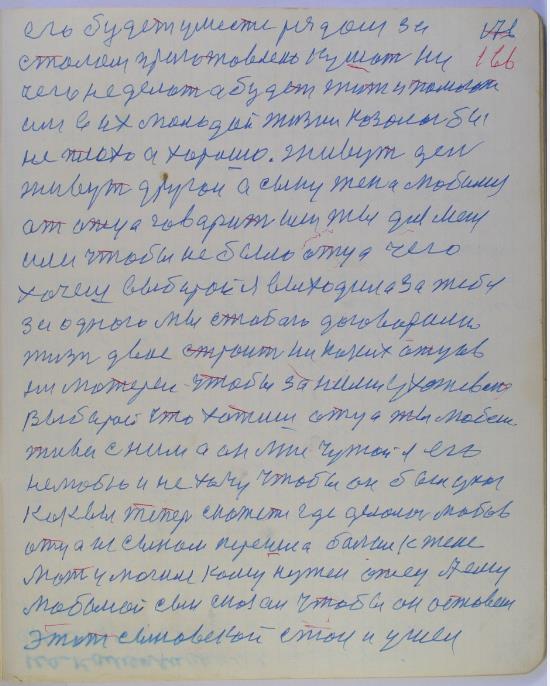 его будет уместе рядом за 172
столом приготовлено кушат ни 166
чего неделат а будет жит и помогат
им в их молодой жизни козолос бы
не плохо а хорошо. живут ден
живут другой а сыну жена любимая
от отца говарит или жы для меня
или чтобы не было отца чего
хочеш выбирой я выходила за тебя
за одного мы стобою договорилис
жизн двое строит ни каких отцов
ни матерей чтобы за ними ухаживат
выбирой что хотиш отца ты любеш
живи с ним а он мне чужой я его
нелюблю и не хочу чтобы он был указ
как вы тепер скажете где девалос любов
отца и сыном перешла болше к жене
мат у могиле кому нужен отец
любимой сын сказал чтобы он оставел
этот сыновской стол и ушел